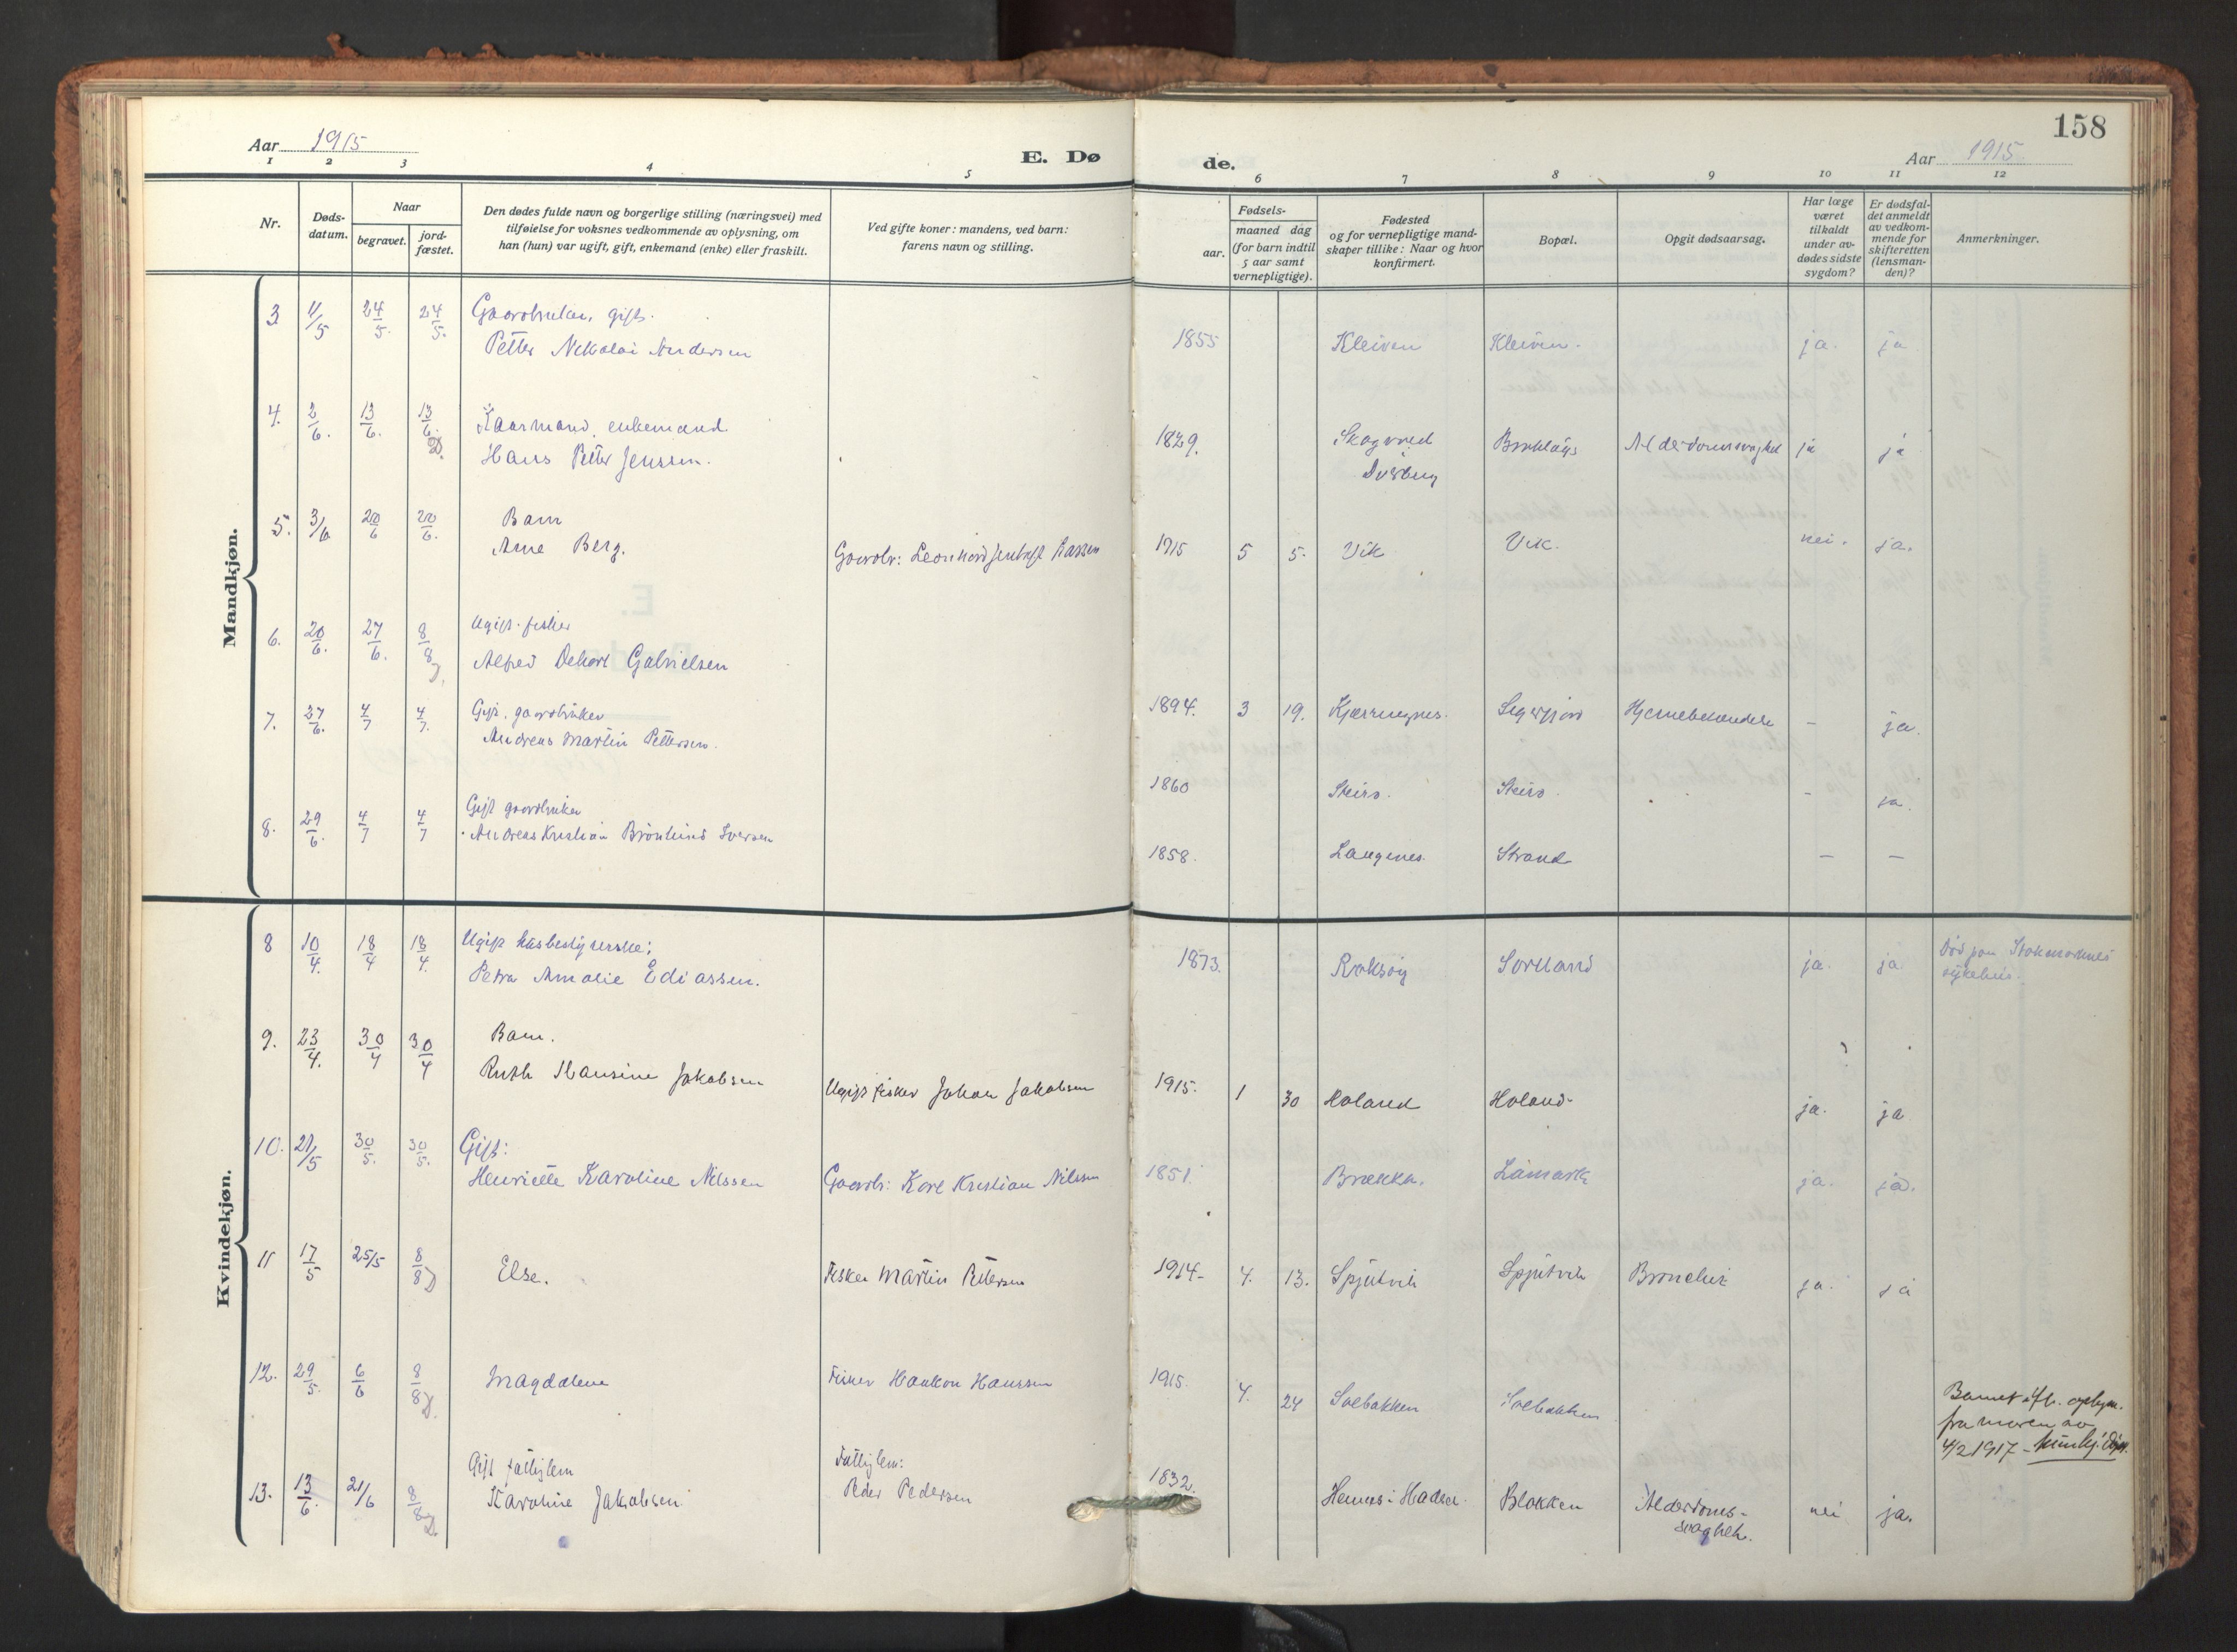 158
Aar 1915
E. Dø
de.
Aar 1915
1 2 3 4 5 6 7 8 9 10 11 12
Nr.
Døds-
datum.
Naar
begravet.
jord-
fæstet.
Den dødes fulde navn og borgerlige stilling (næringsvei) med
tilføielse for voksnes vedkommende av oplysning, om
han (hun) var ugift, gift, enkemand (enke) eller fraskilt.
Ved gifte koner: mandens, ved barn:
farens navn og stilling.
Fødsels-
aar.
maaned dag
(for barn indtil
5 aar samt
vernepligtige).
Fødested
og for vernepligtige mand-
skaper tillike: Naar og hvor
konfirmert.
Bopæl.
Opgit dødsaarsag.
Har læge
været
tilkaldt
under av-
dødes sidste
sygdom?
Er dødsfal-
det anmeldt
av vedkom-
mende for
skifteretten
(lensman-
den)?
Anmerkninger.
Mandkjøn.
3. 11/5 24/5. 24/5. gift.
Petter Nikolai Andersen 1855 Kleiven Kleiven. ja. ja
4. 2/6. 13/6. 13/6. D. Kaarmand, enkemand
Hans Petter Jenssen. 1829. ja ja
5. 3/6 20/6 20/6. Barn
Arne Berg. Gaardbr: 1915 5 5. Vik Vik. nei. ja.
6. 20/6. 27/6. 8/8 D. Ugift. fisker
Alfred Gabrielsen 1894. 3 19. – ja.
7. 27/6. 4/7 4/7. Gift. gaardbruker
Andreas Martin Pettersen. 1860 Steiro. Steiro. – ja.
8. 29/6. 4/7 4/7 Gift gaardbruker
Andreas Kristian 1858. Langenes. Strand – –
Kvindekjøn.
8 10/4. 18/4 18/4. Ugift husbestyrerske;
Petra Amalie Ediassen. 1873. Sortland ja. ja Død paa Stokmarknes
sykehus.
9. 23/4. 30/4 30/4 Barn.
Ruth Hansine Jakobsen Ugift fisker Johan Jakobsen 1915. 1 30 Holand Holand ja. ja
10. 21/5 30/5. 30/5. Gift:
Henriette Karoline Nilssen Gaardbr: Kristian Nilssen 1851. ja. ja.
11 17/5 25/5 8/8 D Else. Fisker Martin Pettersen 1914 4. 13. Spjutvik Spjutvik ja. ja
12. 29/5. 6/6 8/8 D. Magdalene Fisker Haakon Hanssen 1915. 4. 24
fra moren av
4/2 1917
13. 13/6. 21/6 8/8 D. Gift fattiglem
Karoline Jakobsen Fattiglem:
Peder Pedersen 1832. Hadsel. Blokken Alderdoms-
svaghet. nei ja.